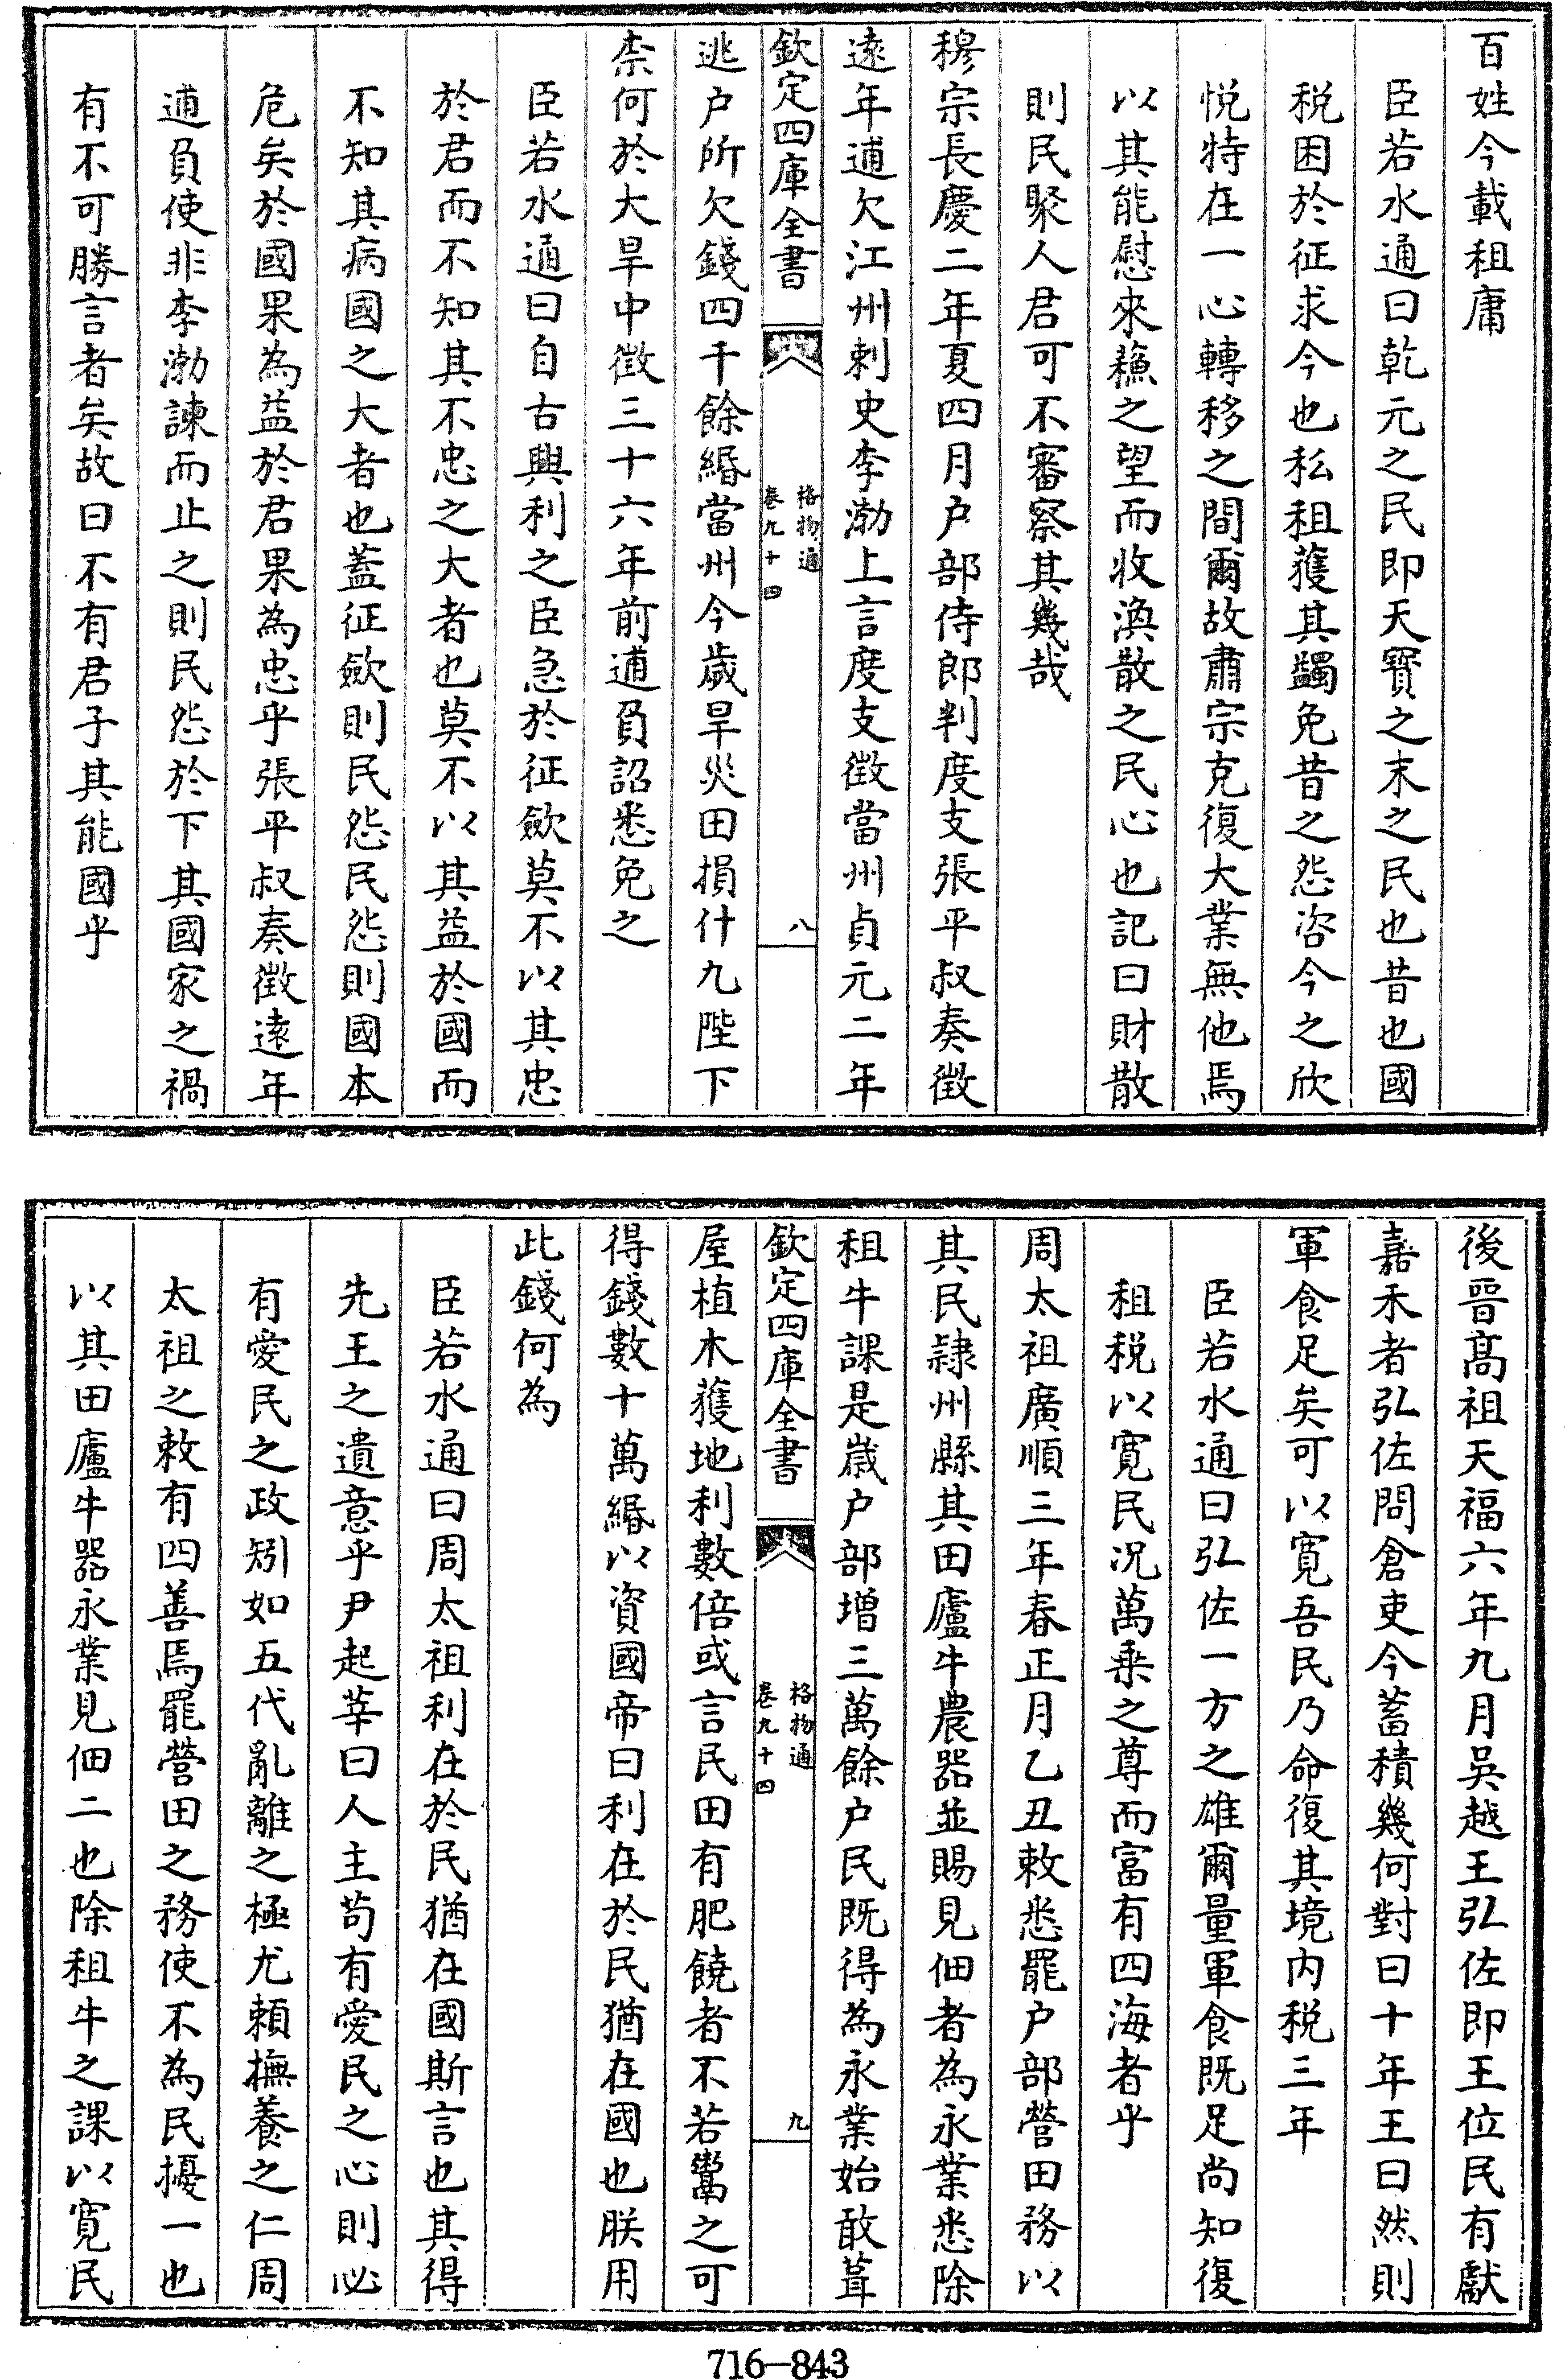 百姓今載租庸
臣若水通曰乾元之民即天寳之末之民也昔也國
税困於征求今也私租蒦其蠲免昔之怨咨今之欣
悦特在一心轉移之間爾故肅宗克復大業無他焉
以其能慰來蘓之望而收渙散之民心也記曰財散
則民聚人君可不審察其幾哉
穆宗長慶二年夏四月户部侍郎判度支張平叔奏徴
逺年逋欠江州刺史李渤上言度支徴當州貞元二年
欽定四庫全書
格物通
卷九十四
八
逃户所欠錢四千餘緡當州今歲旱災田損什九陛下
柰何於大旱中徴三十六年前逋負詔悉免之
臣若水通曰自古興利之臣急於征歛莫不以其忠
於君而不知其不忠之大者也莫不以其益於國而
不知其病國之大者也蓋征歛則民怨民怨則國本
危矣於國果為益於君果為忠乎張平叔奏徴逺年
逋負使非李渤諫而止之則民怨於下其國家之禍
有不可勝言者矣故曰不有君子其能國乎
後晉髙祖天福六年九月吳越王弘佐即王位民有獻
嘉禾者弘佐問倉吏今蓄積幾何對曰十年王曰然則
軍食足矣可以寛吾民乃命復其境内税三年
臣若水通曰弘佐一方之雄爾量軍食既足尚知復
租税以寛民况萬乗之尊而富有四海者乎
周太祖廣順三年春正月乙丑敕悉罷户部營田務以
其民隷州縣其田廬牛農器並賜見佃者為永業悉除
租牛課是嵗户部增三萬餘户民既得為永業始敢葺
欽定四庫全書
格物通
卷九十四
九
屋植木蒦地利數倍或言民田有肥饒者不若鬻之可
得錢數十萬緡以資國帝曰利在於民猶在國也朕用
此錢何為
臣若水通曰周太祖利在於民猶在國斯言也其得
先王之遺意乎尹起莘曰人主苟有愛民之心則必
有愛民之政矧如五代亂離之極尤頼撫養之仁周
太祖之敕有四善焉罷營田之務使不為民擾一也
以其田廬牛器永業見佃二也除租牛之課以寛民
716—843